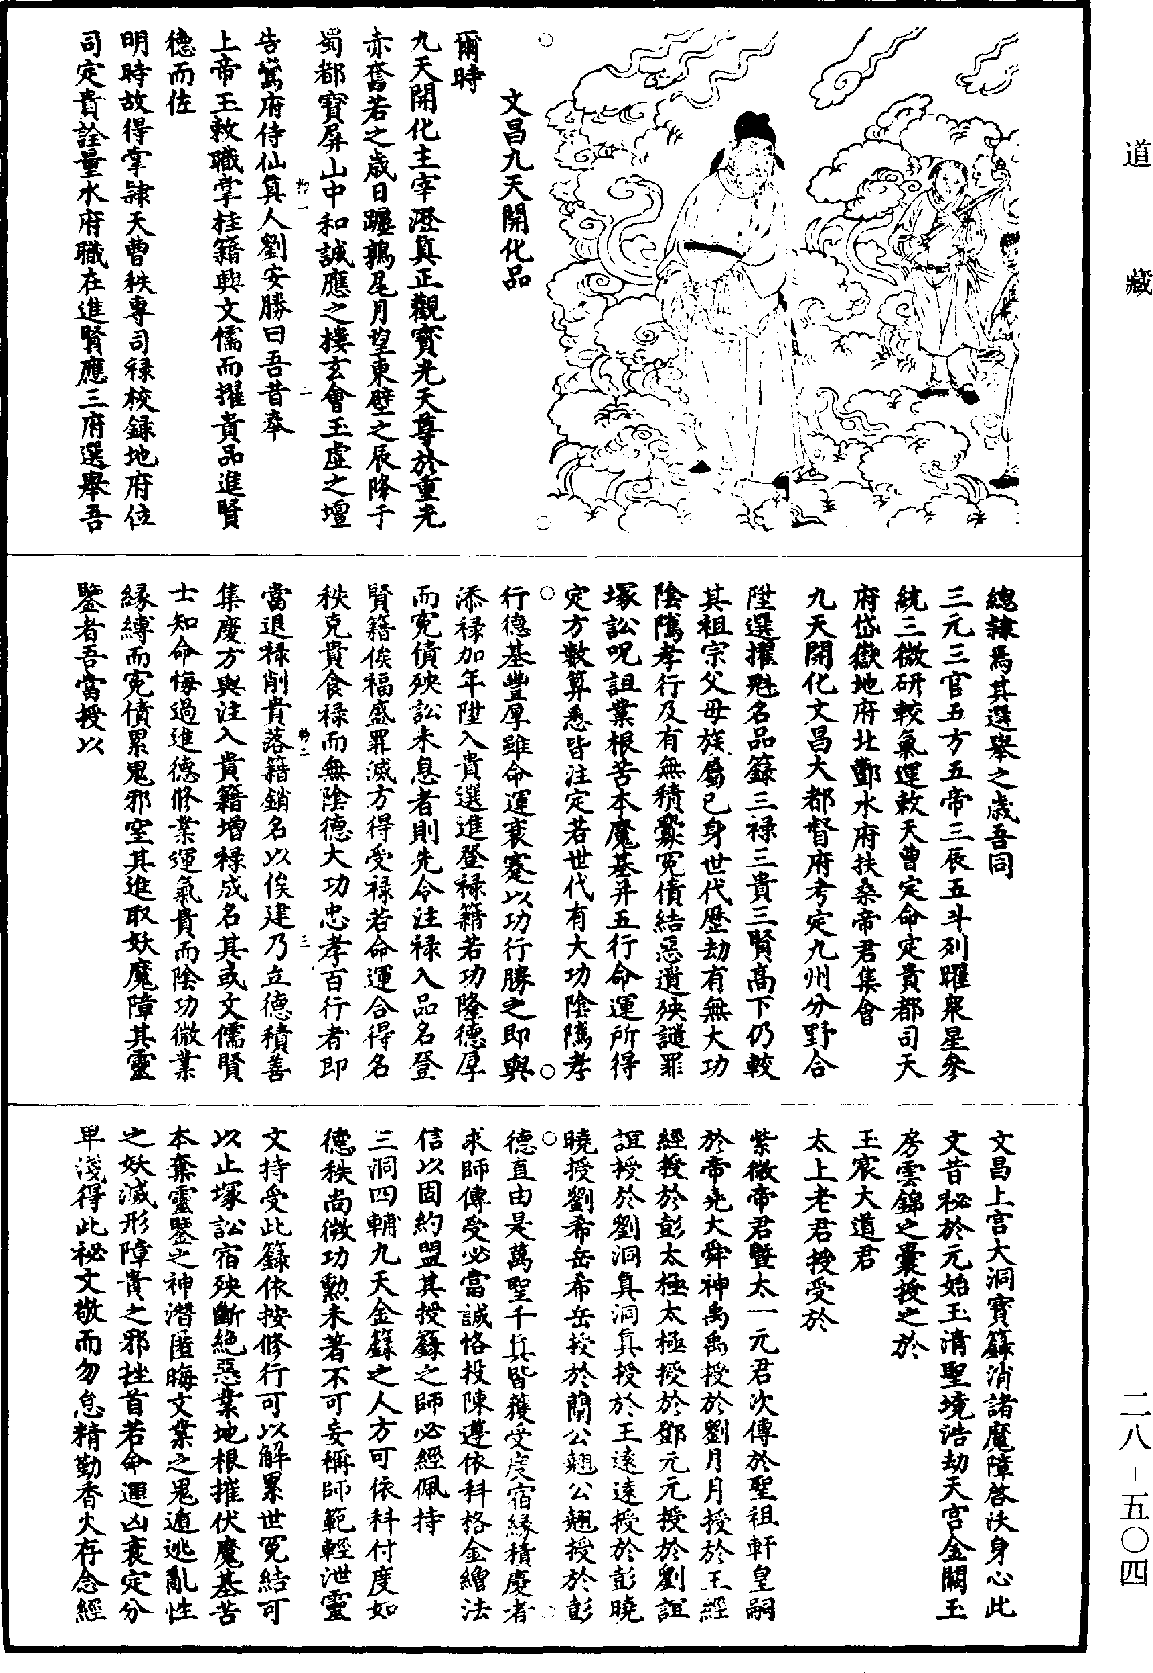 道藏
二八－五〇四
文昌九天開化品
爾時
九天開化主宰澄真正觀寶光天尊於重光
赤奮若之歲日躔鶉尾月望東壁之辰降于
蜀都寶屏山中和誠應之樓玄會玉虛之壇
告鸞府侍仙真人劉安勝曰吾昔奉
上帝玉敕職掌桂籍興文儒而擢貴品進賢
德而佐
明時故得掌隸天曹秩專司祿校錄地府位
司定貴詮量水府職在進賢應三府選舉吾
總隸焉其選舉之歲吾同
三元三官五方五帝三辰五斗列曜衆星參
統三微研較氣運敕天曹定命定貴都司天
府岱嶽地府北酆水府扶桑帝君集會
九天開化文昌大都督府考定九州分野合
陞選擢魁名品籙三祿三貴三賢高下仍較
其祖宗父母族屬已身世代歷劫有無大功
陰隲孝行及有無積釁冤債結惡遺殃譴罪
塚訟呪詛業根苦本魔基并五行命運所得
定方數算悉皆注定若世代有大功陰隲孝
行德基豐厚雖命運衰蹇以功行勝之即與
添祿加年陞入貴選進登祿籍若功隆德厚
而冤債殃訟未息者則先令注祿入品名登
賢籍俟福盛罪滅方得受祿若命運合得名
秩克貴食祿而無陰德大功忠孝百行者即
當退祿削貴落籍銷名以俟建乃立德積善
集慶方與注入貴籍增祿成名其或文儒賢
士知命悔過進德修業運氣貴而陰功微業
緣縛而冤債累鬼邪窒其進取妖魔障其靈
鑒者吾當授以
文昌上宮大洞寶籙消諸魔障啓沃身心此
文昔秘於元始玉清聖境浩劫天宮金闕玉
房雲錦之囊授之於
玉宸大道君
太上老君授受於
紫微帝君暨太一元君次傳於聖祖軒皇嗣
於帝堯大舜神禹禹授於劉月月授於王經
經授於彭太極太極授於鄧元元授於劉誼
誼授於劉洞真洞真授於王遠遠授於彭曉
曉授劉希岳希岳授於蘭公翹公翹授於彭
德直由是萬聖千真皆獲受度宿緣積慶者
求師傳受必當誠恪投陳遵依科格金繒法
信以固約盟其授籙之師必經佩持
三洞四輔九天金籙之人方可依科付度如
德秩尚微功勲未著不可妄稱師範輕泄靈
文持受此籙依按修行可以解累世冤結可
以止塚訟宿殃斷絕惡業地根摧伏魔基苦
本棄靈鑒之神潛匿晦文業之鬼遁逃亂性
之妖滅形障貴之邪挫首若命運凶衰定分
卑淺得此秘文敬而勿怠精勤香火存念經